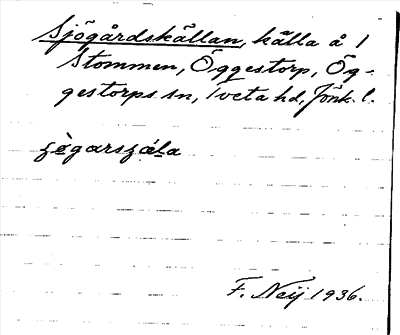 Sjögårdskällan, källa å 1
Stommen, Öggestorp, Ög-
gestorps sn, Tveta hd, Jönk. l.
F. Neij 1936.